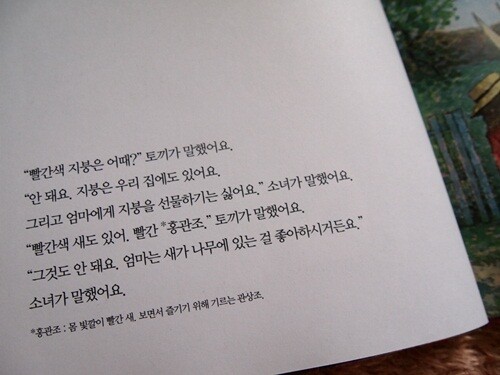 “빨간색 지붕은 어때?” 토끼가 말했어요.
“안 돼요. 지붕은 우리 집에도 있어요.
그리고 엄마에게 지붕을 선물하기는 싫어요.” 소녀가 말했어요.
“빨간색 새도 있어. 빨간 *홍관조.” 토끼가 말했어요.
“그것도 안 돼요. 엄마는 새가 나무에 있는 걸 좋아하시거든요.”
소녀가 말했어요.
*홍관조 : 몸 빛깔이 빨간 새. 보면서 즐기기 위해 기르는 관상조.